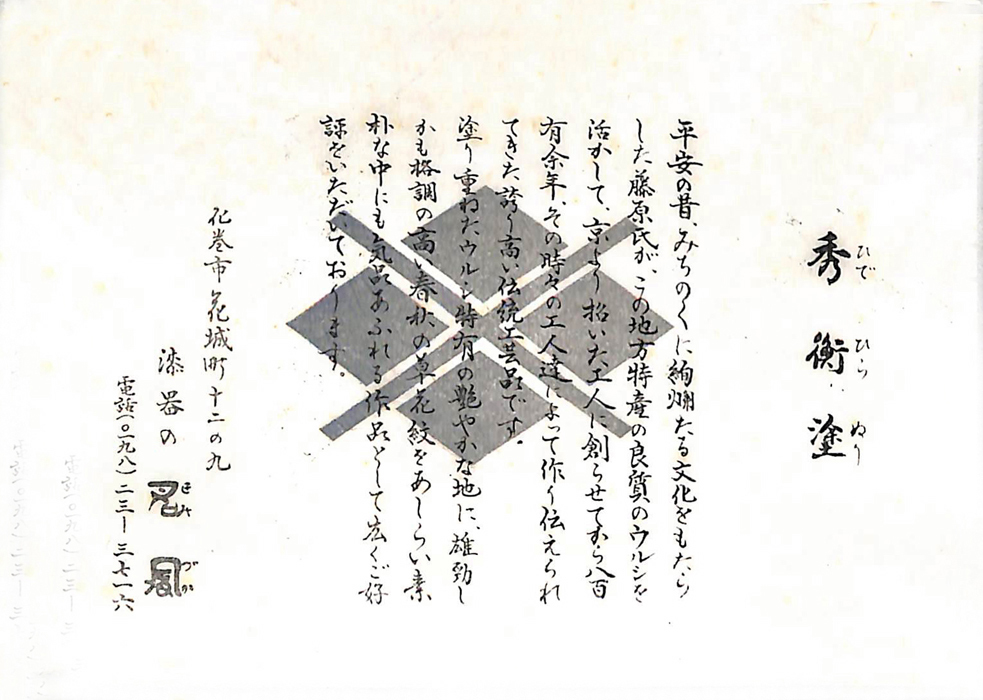 秀衡塗
ひで ひら ぬり
平安の昔、みちのくに絢爛たる文化をもたら
した藤原氏が、この地方特産の良質のウルシを
活かして、京より招いた工人に創らせてから八百
有余年、その時々の工人達によって作り伝えられ
てきた誇り高い伝統工芸品です。
塗り重ねたウルシ特有の艶やかな地に、雄勁し
かも格調の高い春秋の草花紋をあしらい素
朴な中にも気品あふれる作品として広くご好
評をいただいております。
花巻市花城町十二の九
漆器の
電話(〇一九八)二三ー三七一六